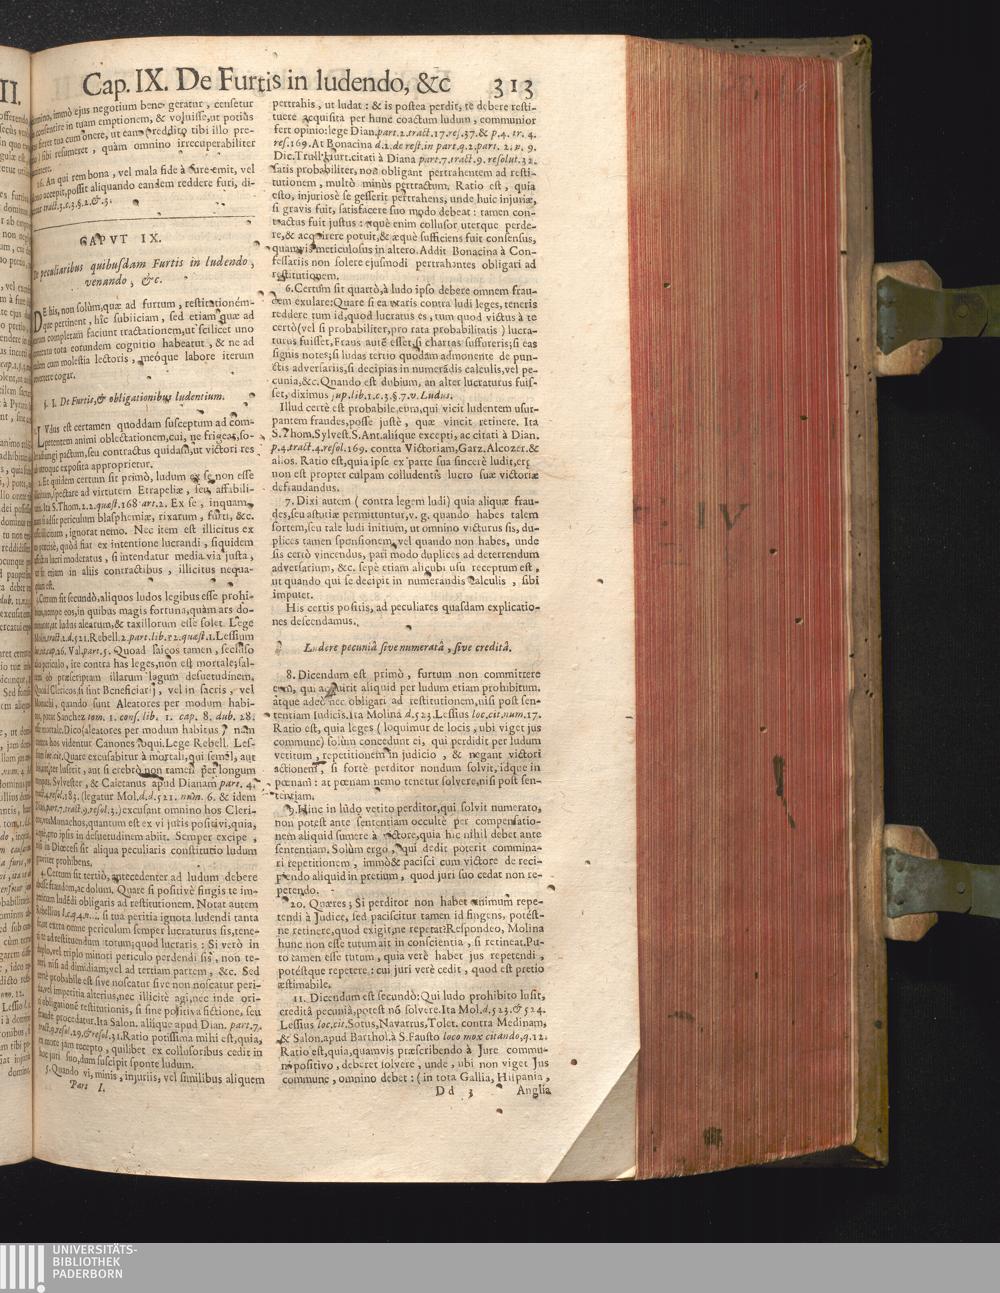 Cap. IX. De Furtis in ludendo, &c 313
domino, immò ejus negotium bene geratur, censetur
consentire in tuam emptionem, & voluisse, ut potiùs
tua cum onere, ut eam reddito tibi illo pre-
sibi resumeret, quàm omnino irrecuperabiliter
16. An qui rem bona, vel mala fide à fure emit, vel
accepit, possit aliquando eandem reddere furi, di-
tract.3.c.3.§.2.&.3.
CAPVT IX.
De peculiaribus quibusdam Furtis in ludendo,
venando, &c.
DE his, non solùm, quæ ad furtum, restitutionem-
que pertinent, hîc subiiciam, sed etiam quæ ad
completam faciunt tractationem, ut scilicet uno
tota eorundem cognitio habeatur, & ne ad
cum molestia lectoris, meóque labore iterum
cogar.
§. I. De Furtis, & obligationibus ludentium.
LVdus est certamen quoddam susceptum ad com-
petentem animi oblectationem, cui, ne frigeat, so-
let adjungi pactum, seu contractus quidam, ut victori res
ab utroque exposita approprietur.
2. Et quidem certum sit primò, ludum ex se non esse
illicitum, spectare ad virtutem Etrapeliæ, seu, affabili-
tatis. Ita S. Thom. 2.2. quæst. 168 art. 2. Ex se, inquam,
nisi aliis particulis blasphemiæ, rixarum, furti, &c.
esse illicitum, ignorat nemo. Nec item est illicitus ex
eo præcisè, quòd fiat ex intentione lucrandi, siquidem
affectus lucri moderatus, si intendatur media via justa,
ut sit etiam in aliis contractibus, illicitus nequa-
quam est.
3. Certum sit secundò, aliquos ludos legibus esse prohi-
bitos, nempe eos, in quibus magis fortuna, quàm ars do-
minatur, ut ludus aleatum, & taxillorum esse solet. Lege
Molin. tract. 2. d. 521. Rebell. 2. part. lib. 12. quæst. 1. Lessium
26. Val. part. 5. Quoad laicos tamen, secluso
periculo, ire contra has leges, non est mortale; sal-
tem ob præscriptam illarum legum desuetudinem.
Quoad Clericos, si sint Beneficiarij, vel in sacris, vel
Monachi, quando sunt Aleatores per modum habi-
tus, putat Sanchez tom. 1. cons. lib. 1. cap. 8. dub. 28.
esse mortale. Dico (aleatores per modum habitus) nam
contra hos videntur Canones loqui. Lege Rebell. Les-
sium loc. cit. Quare excusabitur à mortali, qui semel, aut
iterum, per lusitit, aut si crebrò non tamen per longum
tempus. Sylvester, & Caietanus apud Dianam part. 4.
tract. 4. resol. 183. (legatur Mol. d.d. 521. num. 6. & idem
Dian. part. 7. tract. 9. resol. 3.) excusant omnino hos Cleri-
cos, vel Monachos, quantum est ex vi juris positivi, quia,
aiunt, pro ipsis in desuetudinem abiit. Semper excipe,
nisi in Diœcesi sit aliqua peculiaris constitutio ludum
graviter prohibens.
4. Certum sit tertiò, antecedenter ad ludum debere
abesse fraudem, ac dolum. Quare si positivè fingis te im-
peritum ludédi obligaris ad restitutionem. Notat autem
Rebellius l.c.q.4.n... si tua peritia ignota ludendi tanta
sit, ut extra omne periculum semper lucraturus sis, tene-
ri te ad restituendum totum; quod lucraris: Si verò in
duplo, vel triplo minori periculo perdendi sis, non te-
neri, nisi ad dimidiam; vel ad tertiam partem, &c. Sed
certè probabile est sive noscatur sive non noscatur peri-
tia, vel imperitia alterius, nec illicitè agi, nec inde ori-
ri obligationem restitutionis, si sine positiva fictione, seu
fraude procedatur. Ita Salon. aliique apud Dian. part. 7.
tract. 9. resol. 29. & resol. 31. Ratio potissima mihi est, quia,
ex more jam recepto, quilibet ex collusoribus cedit in
hoc juri suo, dum suscipit sponte ludum.
5. Quando vi, minis, injuriis, vel similibus aliquem
Pars I.
pertrahis, ut ludat: & is postea perdit; te debere resti-
tuere acquisita per hunc coactum ludum, communior
fert opinio: lege Dian. part. 2. tract. 17. res. 37. & p. 4. tr. 4.
res. 169. At Bonacina d. 2. de rest. in part. q. 2. part. 2. p. 9.
Dic. Trull. Giurt. citati à Diana part. 7. tract. 9. resolut. 32.
satis probabiliter, non obligant pertrahentem ad resti-
tutionem, multò minùs pertractum. Ratio est, quia
esto, injuriosè se gesserit pertrahens, unde huic injuriæ,
si gravis fuit, satisfacere suo modo debeat: tamen con-
tractus fuit justus: æquè enim collusor uterque perde-
re, & acquirere potuit, & æquè sufficiens fuit consensus,
quamvis meticulosus in altero. Addit Bonacina à Con-
fessariis non solere ejusmodi pertrahentes obligari ad
restitutionem.
6. Certum sit quartò, à ludo ipso debere omnem frau-
dem exulare: Quare si ea utaris contra ludi leges, teneris
reddere tum id, quod lucratus es, tum quod victus à te
certò (vel si probabiliter, pro rata probabilitatis) lucra-
turus fuisset, Fraus auté esset; si chartas suffureris; si eas
signis notes; si ludas tertio quodam admonente de pun-
ctis adversariis, si decipias in numerādis calculis, vel pe-
cunia, &c. Quando est dubium, an alter lucraturus fuis-
set, diximus sup. lib. 1. c. 3. §. 7. v. Ludus.
Illud certè est probabile, eum, qui vicit ludentem usur-
pantem fraudes, posse justè, quæ vincit retinere. Ita
S. Thom. Sylvest. S. Ant. aliique excepti, ac citati à Dian.
p. 4. tract. 4. resol. 169. contra Victoriam, Garz. Alcozer. &
alios. Ratio est, quia ipse ex parte sua sincerè ludit, erg
non est propter culpam colludentis lucro suæ victoriæ
defraudandus.
7. Dixi autem (contra legem ludi) quia aliquæ frau-
des, seu astutiæ permittuntur, v.g. quando habes talem
sortem, seu tale ludi initium, ut omnino victurus sis, du-
plices tamen sponsionem, vel quando non habes, unde
sis certò vincendus, pari modo duplices ad deterrendum
adversarium, &c. sepè etiam alicubi usu receptum est,
ut quando qui se decipit in numerandis calculis, sibi
imputet.
His certis positis, ad peculiares quasdam explicatio-
nes descendamus.
Ludere pecuniâ sive numeratâ, sive creditâ.
8. Dicendum est primò, furtum non committere
eum, qui acquirit aliquid per ludum etiam prohibitum.
atque adeò nec obligari ad restitutionem, nisi post sen-
tentiam Iudicis. Ita Molina d. 523. Lessius loc. cit. num. 17.
Ratio est, quia leges (loquimur de locis, ubi viget jus
commune) solùm concedunt ei, qui perdidit per ludum
vetitum, repetitionem in judicio, & negant victori
actionem, si fortè perditor nondum solvit, idque in
pœnam: at pœnam nemo tenetur solvere, nisi post sen-
tentiam.
9. Hinc in ludo vetito perditor, qui solvit numerato,
non potest ante sententiam occultè per compensatio-
nem aliquid sumere à victore, quia hic nihil debet ante
sententiam. Solùm ergo, qui dedit poterit commina-
ri repetitionem, immò & pacisci cum victore de reci-
piendo aliquid in pretium, quod juri suo cedat non re-
petendo.
20. Quæres; Si perditor non habet animum repe-
tendi à Judice, sed paciscitur tamen id fingens, potést-
ne retinere, quod exigit, ne repetat? Respondeo, Molina
hunc non esse tutum ait in conscientia, si retineat. Pu-
to tamen esse tutum, quia verè habet jus repetendi,
potéstque repetere: cui juri verè cedit, quod est pretio
æstimabile.
11. Dicendum est secundò: Qui ludo prohibito lusit,
creditâ pecuniâ, potest nō solvere. Ita Mol. d. 523. & 524.
Lessius loc. cit. Sotus, Navarrus, Tolet. contra Medinam,
& Salon. apud Barthol. à S. Fausto loco mox citando, q. 12.
Ratio est, quia, quamvis præscribendo à Jure commu-
ni positivo, deberet solvere, unde, ubi non viget Jus
commune, omnino debet: (in tota Gallia, Hispania,
Dd 3 Anglia
UNIVERSITÄTS-
BIBLIOTHEK
PADERBORN